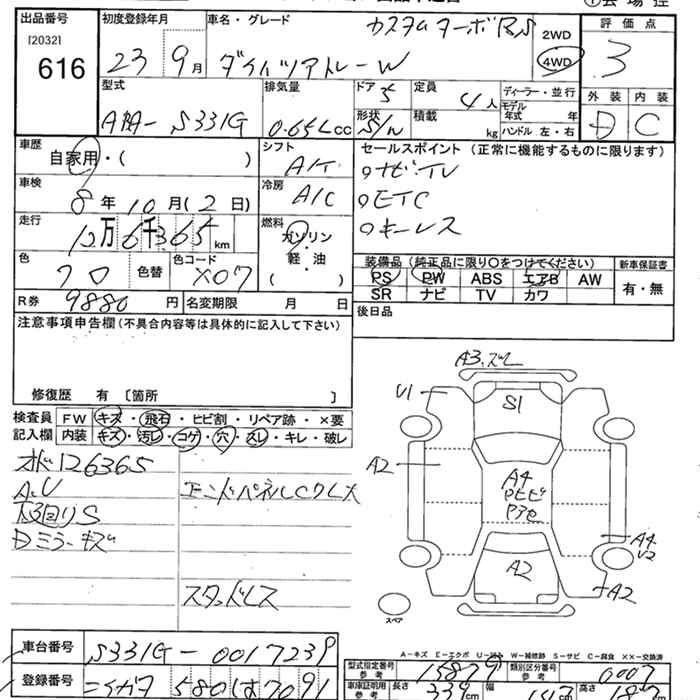 出品番号
[2032]
616
初度登録年月
23 9月
車名・グレード
カスタムターボRS
ダイハツアトレーW
2WD
4WD
評価点
3
外装 内装
D C
型式
ABA-S331G
排気量
0.65L cc
ドア
5
形状
S/W
定員
4人
積載
kg
ディーラー・並行
モデル年式 年
ハンドル 左・右
車歴
自家用・( )
車検
8年10月(2日)
走行
12万6千365 km
色
クロ
色替
色コード
X07
R券
9880円
名変期限 月 日
シフト
A/T
冷房
A/C
燃料
ガソリン
軽・油
( )
セールスポイント(正常に機能するものに限ります)
○ナビTV
○ETC
○キーレス
装備品(純正品に限り○をつけてください)
PS PW ABS エアB AW
SR ナビ TV カワ
新車保証書
有・無
後日品
注意事項申告欄(不具合内容等は具体的に記入して下さい)
修復歴 有 〔箇所 〕
検査員
記入欄
FW キズ・飛石・ヒビ割・リペア跡・×要
内装 キズ・汚レ・コゲ・穴・スレ・キレ・破レ
オド126365
A.U
下回りS
Dミラーキズ
エンドパネルCクレX
スタッドレス
A3.ズレ
U1
S1
A2
A4
A4
U2
A2
A2
スペア
A-キズ E-エクボ U-凹ミ W-補修跡 S-サビ C-腐食 ××-交換済
車台番号
S331G-0017239
登録番号
580 7091
型式指定番号
参考
15879
類別区分番号
参考
0007
車庫証明用
参考
長さ
339cm
幅
cm
高さ
cm